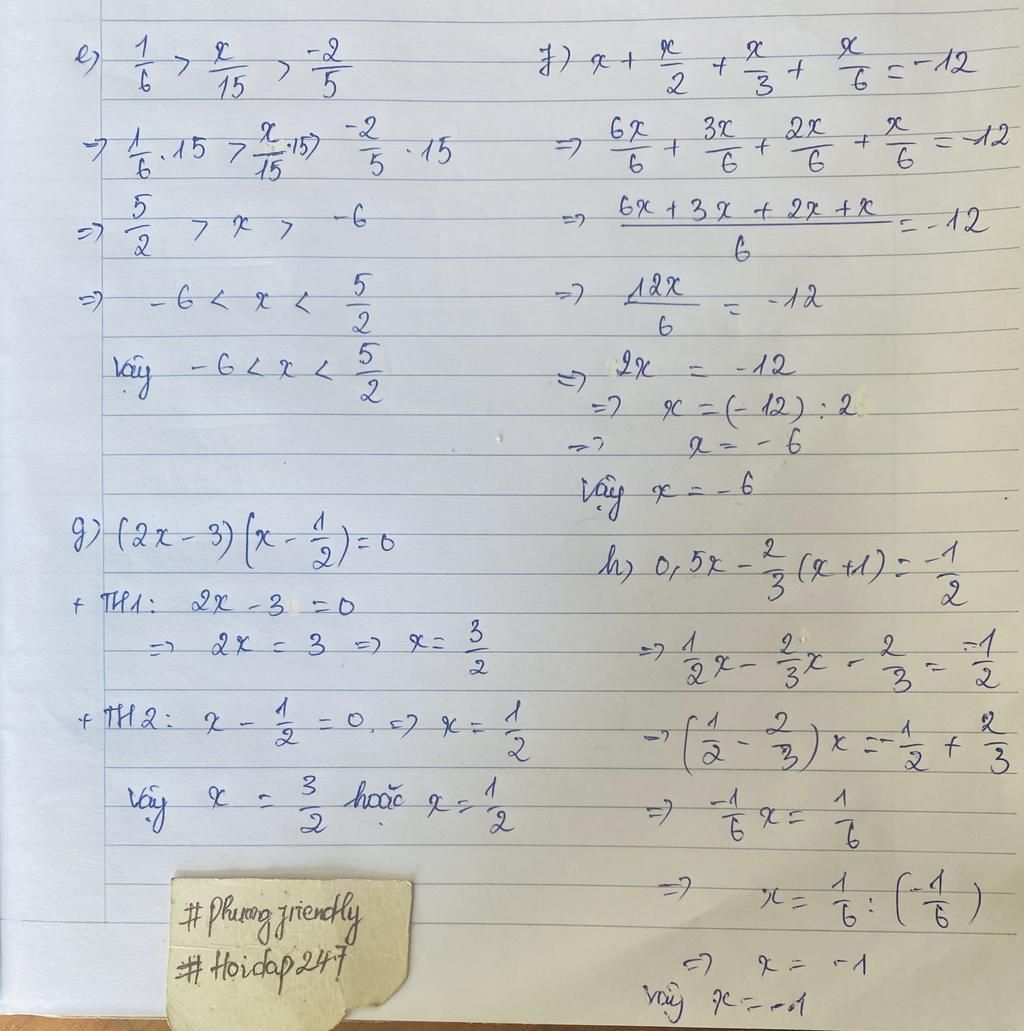 e) 1/6 > x/15 > -2/5
=> 1/6 . 15 > x/15 .15 > -2/5 . 15
=> 5/2 > x > -6
=> -6 < x < 5/2
Vậy -6 < x < 5/2
f) x + x/2 + x/3 + x/6 = -12
=> 6x/6 + 3x/6 + 2x/6 + x/6 = -12
=> (6x + 3x + 2x + x)/6 = -12
=> 12x/6 = -12
=> 2x = -12
=> x = (-12) : 2
=> x = -6
Vậy x = -6
g) (2x - 3)(x - 1/2) = 0
+ TH1: 2x - 3 = 0
=> 2x = 3 => x = 3/2
+ TH2: x - 1/2 = 0. => x = 1/2
Vậy x = 3/2 hoặc x = 1/2
h) 0,5x - 2/3 (x+1) = -1/2
=> 1/2 x - 2/3 x - 2/3 = -1/2
=> (1/2 - 2/3) x = -1/2 + 2/3
=> -1/6 x = 1/6
=> x = 1/6 : (-1/6)
=> x = -1
Vậy x = -1
#Phuongfriendly
#Hoidap247